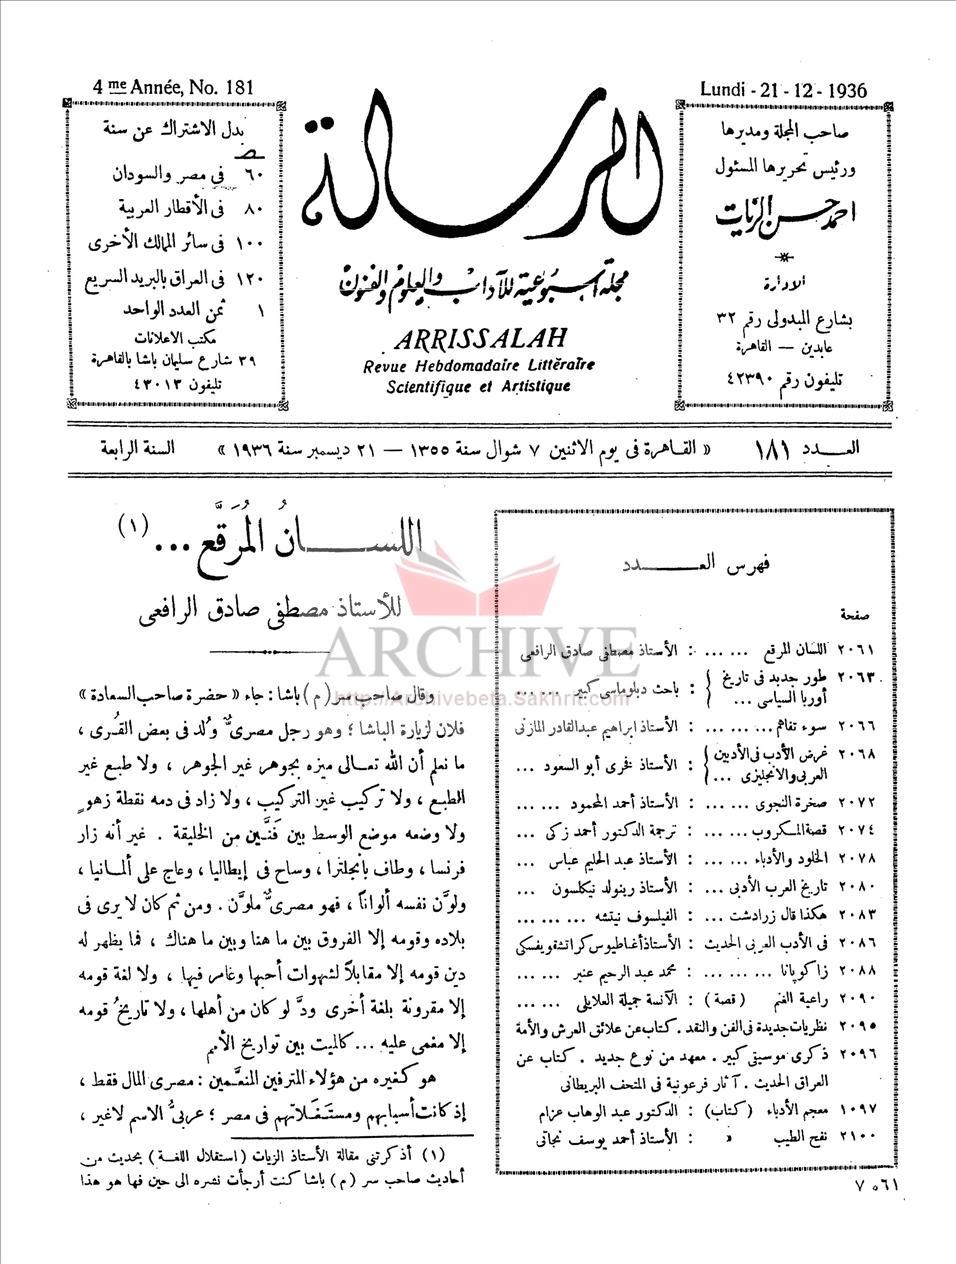 4 me Année, No. 181
Lundi - 21 - 12 - 1936
صاحب المجلة ومديرها
ورئيس تحريرها المسئول
احمد حسن الزيات
الادارة
بشارع المبدولى رقم ٣٢
عابدين — القاهرة
تليفون رقم ٤٢٣٩٠
الرسالة
مجلة أسبوعية للآداب والعلوم والفنون
ARRISSALAH
Revue Hebdomadaire Littéraire
Scientifique et Artistique
بدل الاشتراك عن سنة
٦٠ فى مصر والسودان
٨٠ فى الأقطار العربية
١٠٠ فى سائر الممالك الأخرى
١٢٠ فى العراق بالبريد السريع
١ ثمن العدد الواحد
مكتب الاعلانات
٣٩ شارع سليمان باشا بالقاهرة
تليفون ٤٣٠١٣
العـــدد ١٨١ « القاهرة فى يوم الاثنين ٧ شوال سنة ١٣٥٥ — ٢١ ديسمبر سنة ١٩٣٦ » السنة الرابعة
فهرس العـــدد
صفحة
٢٠٦١ اللسان المرقع ... ... : الأستاذ مصطفى صادق الرافعى
٢٠٦٣ طور جديد فى تاريخ أوربا السياسى ... : باحث دبلوماسى كبير ... ...
٢٠٦٦ سوء تفاهم ... ... ... : الأستاذ ابراهيم عبدالقادر المازنى
٢٠٦٨ غرض الأدب فى الأدبين العربى والانجليزى ... : الأستاذ فخرى أبو السعود ...
٢٠٧٢ صخرة النجوى ... ... : الأستاذ أحمد المحمود ... ...
٢٠٧٤ قصة المكروب ... ... : ترجمة الدكتور أحمد زكى ...
٢٠٧٨ الخلود والأدباء ... ... : الأستاذ عبد الحليم عباس ...
٢٠٨٠ تاريخ العرب الأدبى ... : الأستاذ رينولد نيكلسون ...
٢٠٨٣ هكذا قال زرادشت ... : الفيلسوف نيتشه ... ... ...
٢٠٨٦ فى الأدب العربى الحديث : الأستاذ أغناطيوس كراتشقويفسكى
٢٠٨٨ زاكوپانا ... ... ... : محمد عبد الرحيم عنبر ... ...
٢٠٩٠ راعية الغنم ( قصة ) : الآنسة جميلة العلايلى ... ...
٢٠٩٥ نظريات جديدة فى الفن والنقد . كتاب عن علائق العرش والأمة
٢٠٩٦ ذكرى موسيقى كبير . معهد من نوع جديد . كتاب عن
العراق الحديث . آثار فرعونية فى المتحف البريطانى
١٠٩٧ معجم الأدباء ( كتاب ) : الدكتور عبد الوهاب عزام
٢١٠٠ نفح الطيب » : الأستاذ أحمد يوسف نجاتى
اللســـانُ المُرَقَّع ... (١)
للأستاذ مصطفى صادق الرافعى
وقال صاحب سر ( م ) باشا : جاء « حضرة صاحب السعادة »
فلان لزيارة الباشا ؛ وهو رجل مصرىٌّ وُلد فى بعض القُرى ،
ما نعلم أن الله تعالى ميزه بجوهر غير الجوهر ، ولا طبع غير
الطبع ، ولا تركيب غير التركيب ، ولا زاد فى دمه نقطة زهوٍ
ولا وضعه موضع الوسط بين فَنَّيْن من الخليقة . غير أنه زار
فرنسا ، وطاف بانجلترا ، وساح فى إيطاليا ، وعاج على ألمانيا ،
ولوَّن نفسه ألواناً ، فهو مصرىٌّ ملوَّن . ومن ثم كان لا يرى فى
بلاده وقومه إلا الفروق بين ما هنا وبين ما هناك ، فما يظهر له
دين قومه إلا مقابلاً لشهوات أحبها وغامر فيها ، ولا لغة قومه
إلا مقرونة بلغة أخرى ودَّ لو كان من أهلها ، ولا تاريخُ قومه
إلا مغمى عليه ... كالميت بين تواريخ الأمم
هو كغيره من هؤلاء المترفين المنعَّمين : مصرى المال فقط ،
إذ كانت أسبابهم ومستَغَلاتهم فى مصر ؛ عربىُّ الاسم لاغير ،
(١) أذكرتنى مقالة الأستاذ الزيات ( استقلال اللغة ) بحديث من
أحاديث صاحب سر ( م ) باشا كنت أرجأت نشره الى حين فها هو هذا
ARCHIVE
http://Archivebeta.Sakhrit.com